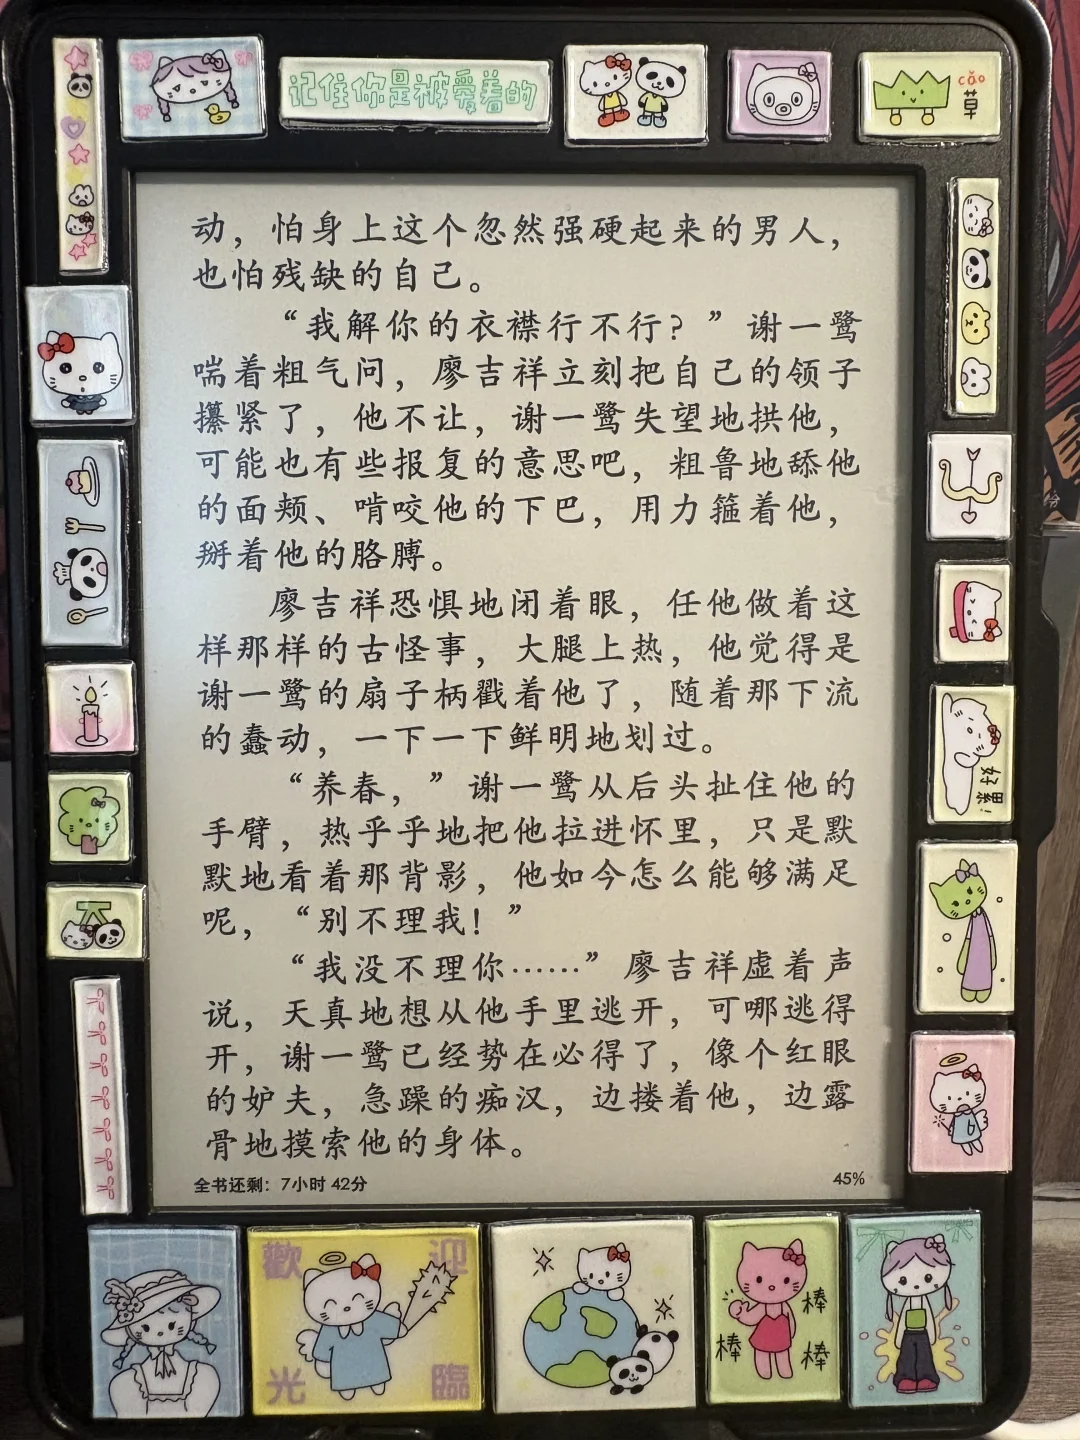 记住你是被爱着的
cǎo
草
动，怕身上这个忽然强硬起来的男人，
也怕残缺的自己。
“我解你的衣襟行不行？”谢一鹭
喘着粗气问，廖吉祥立刻把自己的领子
攥紧了，他不让，谢一鹭失望地拱他，
可能也有些报复的意思吧，粗鲁地舔他
的面颊、啃咬他的下巴，用力箍着他，
掰着他的胳膊。
廖吉祥恐惧地闭着眼，任他做着这
样那样的古怪事，大腿上热，他觉得是
谢一鹭的扇子柄戳着他了，随着那下流
的蠢动，一下一下鲜明地划过。
“养春，”谢一鹭从后头扯住他的
手臂，热乎乎地把他拉进怀里，只是默
默地看着那背影，他如今怎么能够满足
呢，“别不理我！”
“我没不理你……”廖吉祥虚着声
说，天真地想从他手里逃开，可哪逃得
开，谢一鹭已经势在必得了，像个红眼
的妒夫，急躁的痴汉，边搂着他，边露
骨地摸索他的身体。
全书还剩：7小时 42分
45%
歡迎
光臨
棒
棒 棒